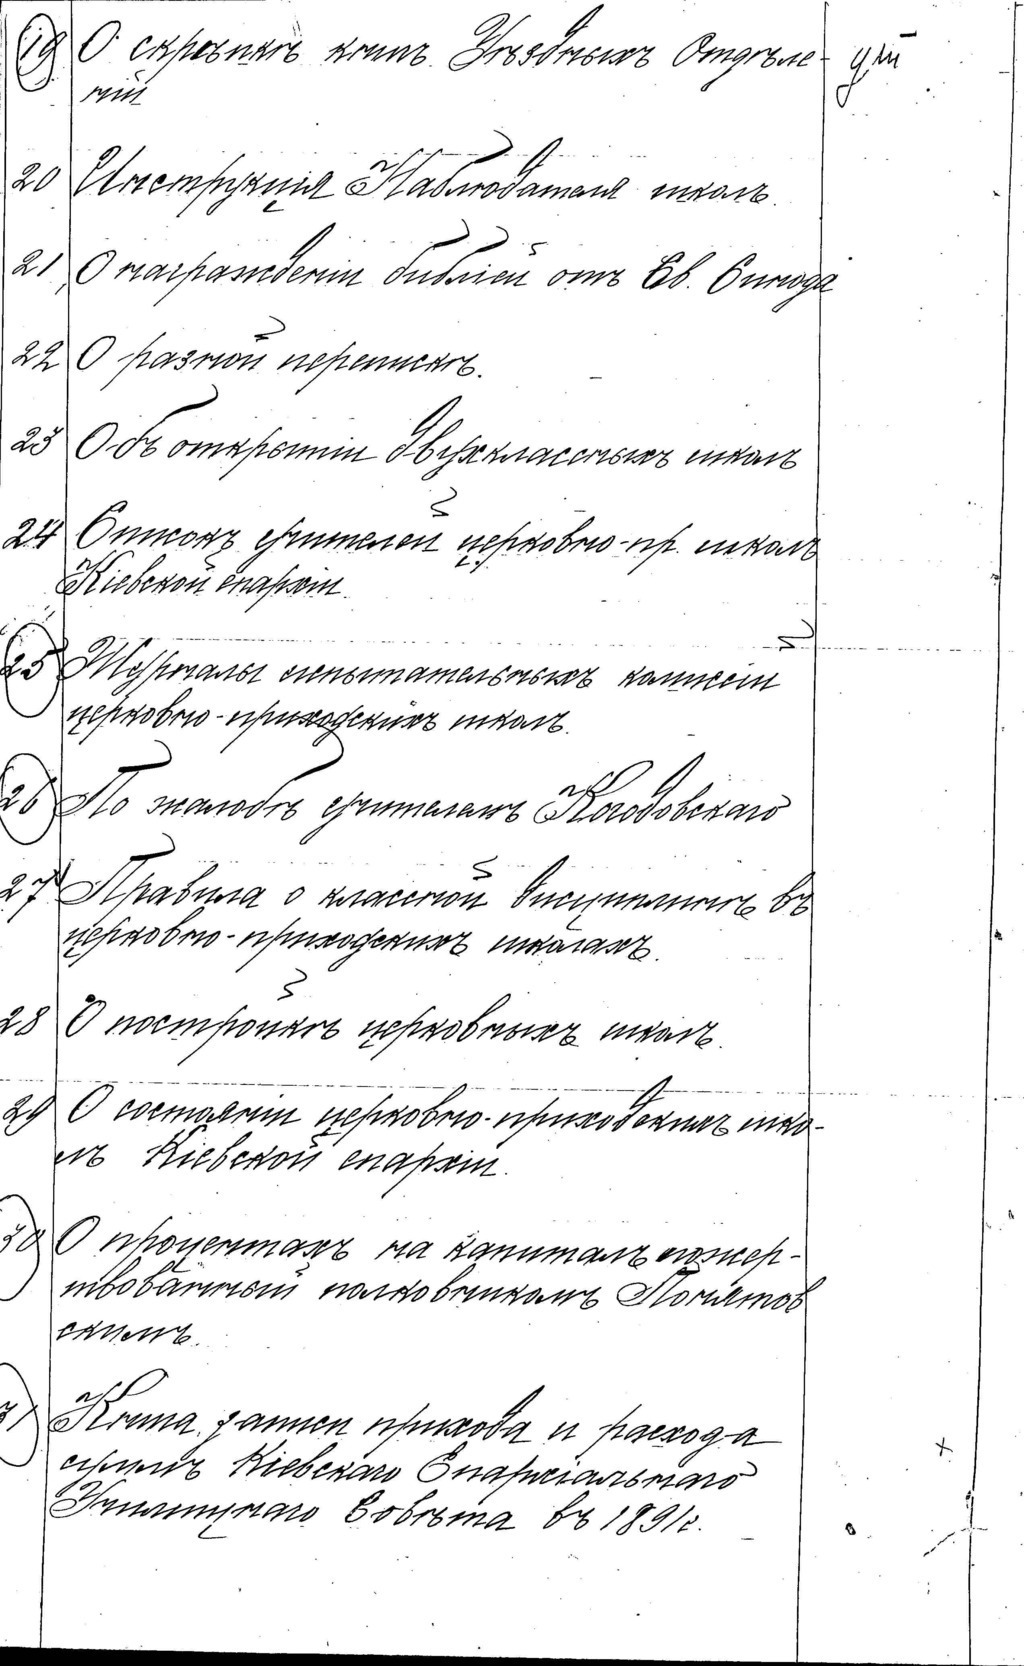 19 О скрѣпкѣ книг Уѣздныхъ Отдѣле-
ній
20 Инструкція Наблюдателя школъ.
21 О награжденіи библіей отъ Св. Синода
22 О разной перепискѣ.
23 Объ открытіи двухклассныхъ школъ
24 Списокъ учителей церковно-пр. школъ
Кіевской епархіи.
25 Журналы испытательныхъ комисій
церковно-приходскихъ школъ.
26 По жалобѣ учителемъ
27 Правила о классной дисциплинѣ въ
церковно-приходскихъ школахъ.
28 О постройкѣ церковныхъ школъ.
29 О состояніи церковно-приходскихъ шко-
лъ Кіевской епархіи.
30 О процентахъ на капиталъ пожер-
твованный полковникомъ Понятов
скимъ.
31 Книга записи прихода и расхода
суммъ Кіевскаго Епархіальнаго
Училищнаго Совѣта въ 1891г.